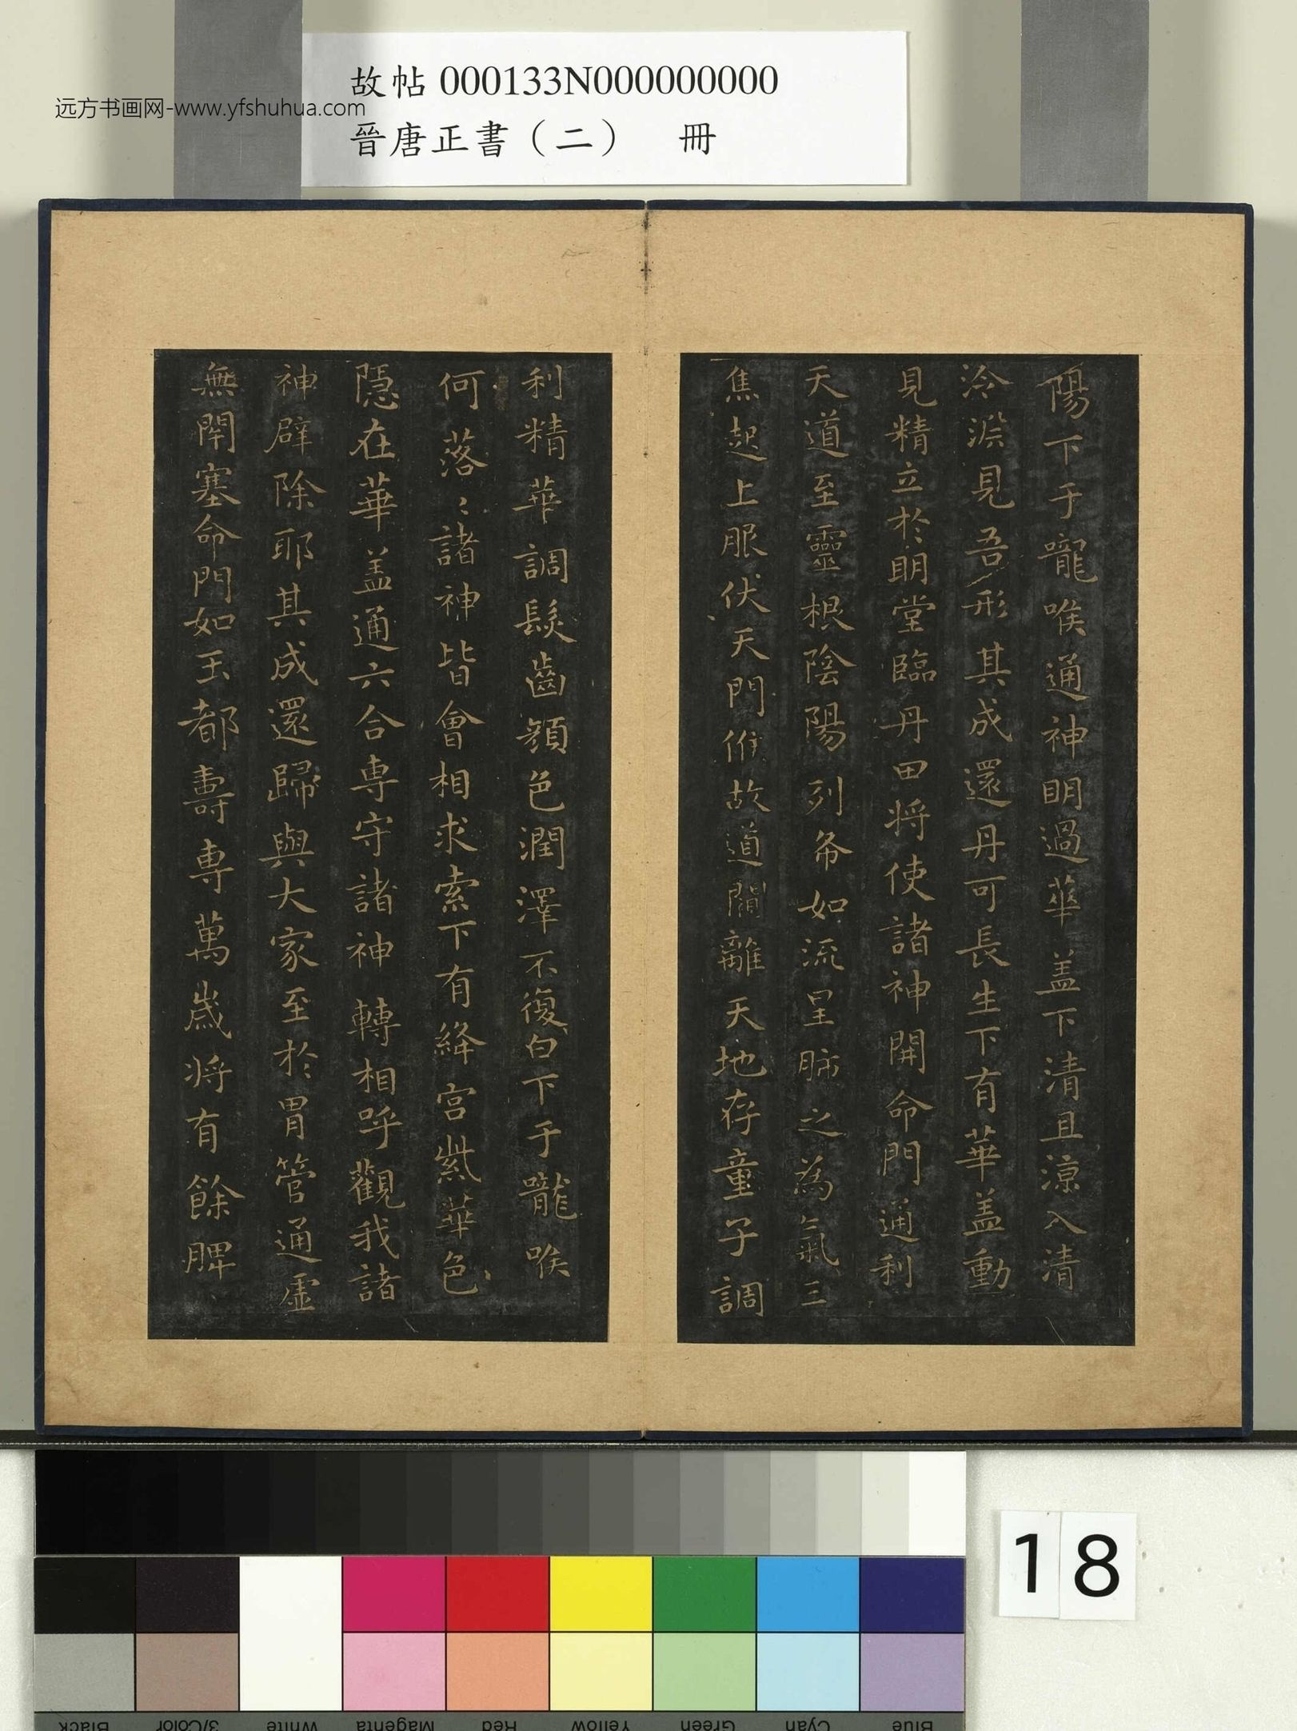 故帖 000133N000000000
远方书画网-www.yfshuhua.com
晉唐正書（二） 冊
陽下于嚨喉通神明過華盖下清且涼入清
泠淵見吾形其成還丹可長生下有華盖動
見精立於明堂臨丹田将使諸神開命門通利
天道至靈根陰陽列布如流星肺之為氣三
焦起上服伏天門候故道闚離天地存童子調
利精華調髮齒顏色潤澤不復白下于嚨喉
何落〻諸神皆會相求索下有絳宫紫華色
隱在華盖通六合專守諸神轉相呼觀我諸
神辟除耶其成還歸與大家至於胃管通虛
無閇塞命門如玉都壽專萬歲将有餘脾
18
Black 3/Color White Magenta Red Yellow Green Cyan Blue